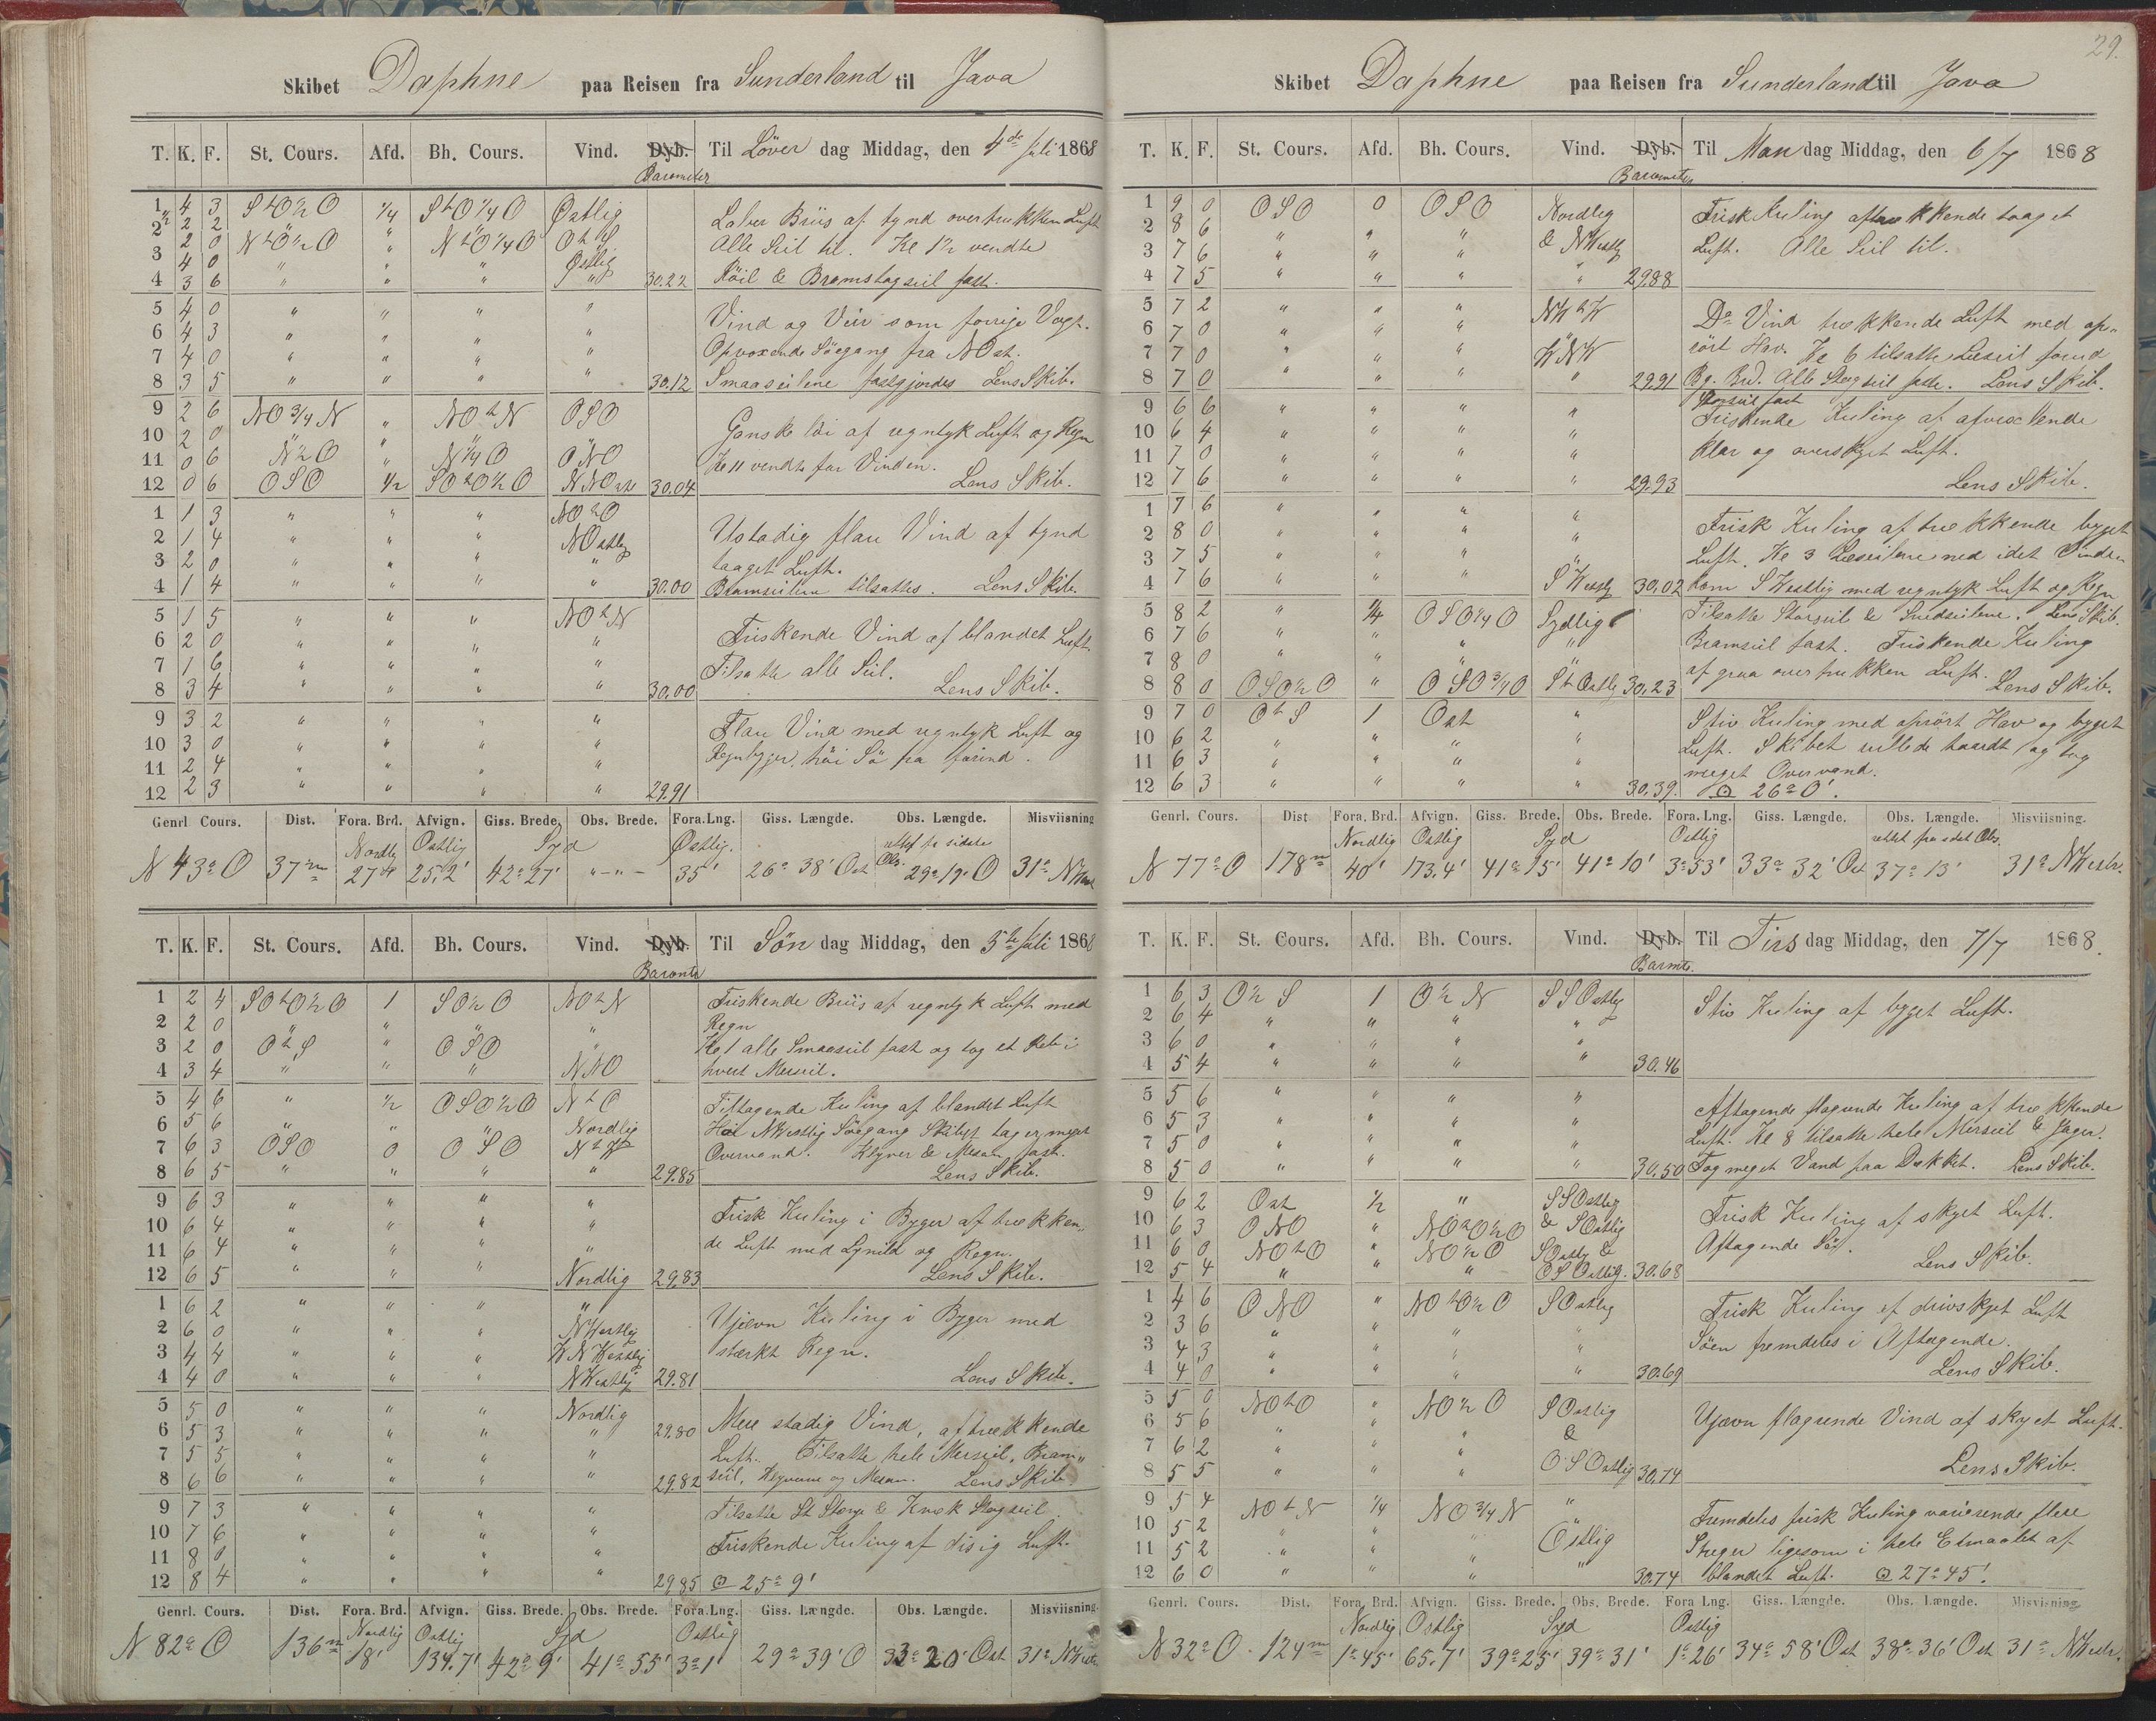 Skibet Daphne paa Reisen fra Sunderland til Java
T. K. F. St. Cours. Afd. Bh. Cours. Vind. Dyb. Barometer Til Löver dag Middag, den 4de Juli 1868
1 4 3 StO½O ¼ StO¼O Østlig Laber Briis af tynd overtrukken Luft
2 2 2 " " "
2 0 NtO½O " NtO¼O OtS Alle Seil til. Kl 1½ vendte
3 4 0 " " " Østlig
4 3 6 " " " " 30.22 Röil & Bramstagseil fast.
5 4 0 " " " "
6 4 3 " " " " Vind og Veir som forrige Vagt.
7 4 0 " " " " Opvoxende Söegang fra NOst.
8 3 5 " " " " 30.12 Smaaseilene fastgjordes Lens Skib.
9 2 6 NO¾N " NOtN OSO
10 2 0 " " " " Ganske löi af regntyk Luft og Regn
11 0 6 N½O " N¼O ONO Kl 11 vendte for Vinden.
12 0 6 OSO ½ SOtO½O NNOst 30.04 Lens Skib.
1 1 3 " " " NOtO
2 1 4 " " " NOstlig Ustadig flau Vind af tynd
3 2 0 " " " " taaget Luft.
4 1 4 " " " " 30.00 Bramseilene tilsattes. Lens Skib.
5 1 5 " " " NOtN
6 2 0 " " " " Friskende Vind af blandet Luft.
7 1 6 " " " " Tilsatte alle Seil.
8 3 4 " " " " 30.00 Lens Skib.
9 3 2 " " " "
10 3 0 " " " " Flau Vind med regntyk Luft og
11 2 4 " " " " Regnbyger, höi Sö fra forind.
12 2 3 " " " " 29.91
Genrl Cours. Dist. Fora. Brd. Afvign. Giss. Brede. Obs. Brede. Fora. Lng. Giss. Længde. Obs. Længde. Misviisning
Nordlig Östlig Syd Østlig. rettet fra sidste Obs.
N 43° O 37m 27' 25.2' 42° 27' "-"- 35' 26° 38' Ost 29° 19' O 31° NWest
T. K. F. St. Cours. Afd. Bh. Cours. Vind. Dyb. Baromtr Til Sön dag Middag, den 5te Juli 1868
1 2 4 SOtO½O 1 SO½O NOtN Friskende Briis af regntyk Luft med
2 2 0 " " " " Regn
3 2 0 OtS " OSO " Kl 1 alle Smaaseil fast og tog et Reb i
4 3 4 " " " NNO hvert Merseil.
5 4 6 " ½ OSO½O NtO Tiltagende Kuling af blandet Luft
6 5 6 " " " Nordlig Höi NWestlig Söegang Skibet tager meget
7 6 3 OSO 0 OSO NtW Overvand. Klyver & Mesan fast.
8 6 5 " " " " 29.85 Lens Skib.
9 6 3 " " " "
10 6 4 " " " " Frisk Kuling i Byger af trækken-
11 6 4 " " " " de Luft med Lynild og Regn.
12 6 5 " " " Nordlig 29.83 Lens Skib.
1 6 2 " " " "
2 6 0 " " " NWestlig Ujævn Kuling i Byger med
3 4 4 " " " WNWestlig stærkt Regn.
4 4 0 " " " NWestlig 29.81 Lens Skib.
5 5 0 " " " Nordlig
6 5 3 " " " " 29.80 Mere stadig Vind, af trækkende
7 5 5 " " " " Luft. Tilsatte hele Merseil, Bram-
8 6 6 " " " " 29.82 seil, Klyverne og Mesan. Lens Skib
9 7 3 " " " " Tilsatte St Storge & Knæk Stagseil.
10 7 6 " " " "
11 8 0 " " " " Friskende Kuling af disig Luft.
12 8 4 " " " " 29.85 ⊙ 25° 9'
Genrl. Cours. Dist. Fora. Brd. Afvign. Giss. Brede. Obs. Brede. Fora. Lng. Giss. Længde. Obs. Længde. Misviisning
Nordlig Östlig Syd Östlig
N 82° O 136m 18' 134.7' 42° 9' 41° 55' 3° 1' 29° 39' O 33° 20' Ost 31° NWestr
29.
Skibet Daphne paa Reisen fra Sunderland til Java
T. K. F. St. Cours. Afd. Bh. Cours. Vind. Dyb. Barometer Til Man dag Middag, den 6/7 1868
1 9 0 OSO 0 OSO Nordlig Frisk Kuling af trækkende taaget
2 8 6 " " " & NWestlig
3 7 6 " " " Luft. Alle Seil til.
4 7 5 " " " " 29.88
5 7 2 " " " NWtW
6 7 0 " " " " Do Vind trækkende Luft med op-
7 7 0 " " " WNW rört Hav. Kl 6 tilsatte Læseil forud
8 7 0 " " " " 29.91 Bg. Brd. Alle Stagseil fast. Lens Skib.
Storseil fast
9 6 6 " " " " Friskende Kuling af afvexlende
10 6 4 " " " "
11 7 0 " " " " klar og overskyet Luft.
12 7 6 " " " " 29.93 Lens Skib.
1 7 6 " " " "
2 8 0 " " " " Frisk Kuling af trækkende byget
3 7 5 " " " " Luft. Kl 3 Læseilene ned idet Vinden
4 7 6 " " " SWestlig 30.02 kom SWestlig med regntyk Luft og Regn
5 8 2 " ¼ OSO¼O Sydlig Tilsatte Storseil & Snedseilene. Lens Skib.
6 7 6 " " " " Bramseil fast. Friskende Kuling
7 8 0 " " " af graa overtrukken Luft.
8 8 0 OSO½O " OSO¾O StOstlig 30.23 Lens Skib.
9 7 0 OtS 1 Ost " Stiv Kuling med oprört Hav og byget
10 6 2 " " " " Luft. Skibet rullede haardt og tog
11 6 3 " " " meget Overvand.
12 6 3 " " " " 30.39. ⊙ 26° 0'.
Genrl. Cours. Dist Fora. Brd. Afvign. Giss. Brede. Obs. Brede. Fora. Lng. Giss. Længde. Obs. Længde. Misviisning.
Nordlig Östlig Syd Östlig rettet fra sidst Obs.
N 77° O 178m 40' 173.4' 41° 15' 41° 10' 3° 53' 33° 32' Ost 37° 13' 31° NWestr.
T. K. F. St. Cours. Afd. Bh. Cours. Vind. Dyb. Barmtr. Til Tirs dag Middag, den 7/7 1868.
1 6 3 O½S 1 O½N SSOstlig
2 6 4 " " " " Stiv Kuling af byget Luft.
3 6 0 " " " "
4 5 4 " " " " 30.46
5 5 6 " " " "
6 5 3 " " " " Aftagende flagende Kuling af trækkende
7 5 0 " " " " Luft. Kl 8 tilsatte hele Merseil & Jager.
8 5 0 " " " " 30.50 Tog meget Vand paa Dækket. Lens Skib.
9 6 2 Ost ½ " SSOstlig
10 6 3 ONO " NOtO½O & SOstlig Frisk Kuling af skyet Luft.
11 6 0 NOtO " NO½O SOstlig & Aftagende Sö.
12 5 4 " " " OSOstlig. 30.68 Lens Skib.
1 4 6 ONO " NOtO½O SOstlig
2 3 6 " " " " Frisk Kuling af drivskyet Luft
3 4 3 " " " " Söen fremdeles i Aftagende.
4 4 0 " " " " 30.69 Lens Skib.
5 5 0 NOtO " NO½O SOstlig
6 5 6 " " " & Ujævn flagende Vind af skyet Luft.
7 6 2 " " "
8 5 5 " " " OSOstlig 30.74 Lens Skib.
9 5 4 NOtN ¼ NO¾N "
10 5 2 " " " Östlig Fremdeles frisk Kuling varierende flere
11 5 2 " " " Streger ligesom i hele Etmaalet af
12 6 0 " " " " 30.74 blandet Luft. ⊙ 27° 45'.
Genrl. Cours. Dist. Fora. Brd. Afvign. Giss. Brede. Obs. Brede. Fora Lng. Giss. Længde. Obs. Længde. Misviisning
Nordlig Östlig Syd Östlig
N 32° O. 124m 1° 45' 65.7' 39° 25' 39° 31' 1° 26' 34° 58' Ost 38° 36' Ost 31° NWestr.